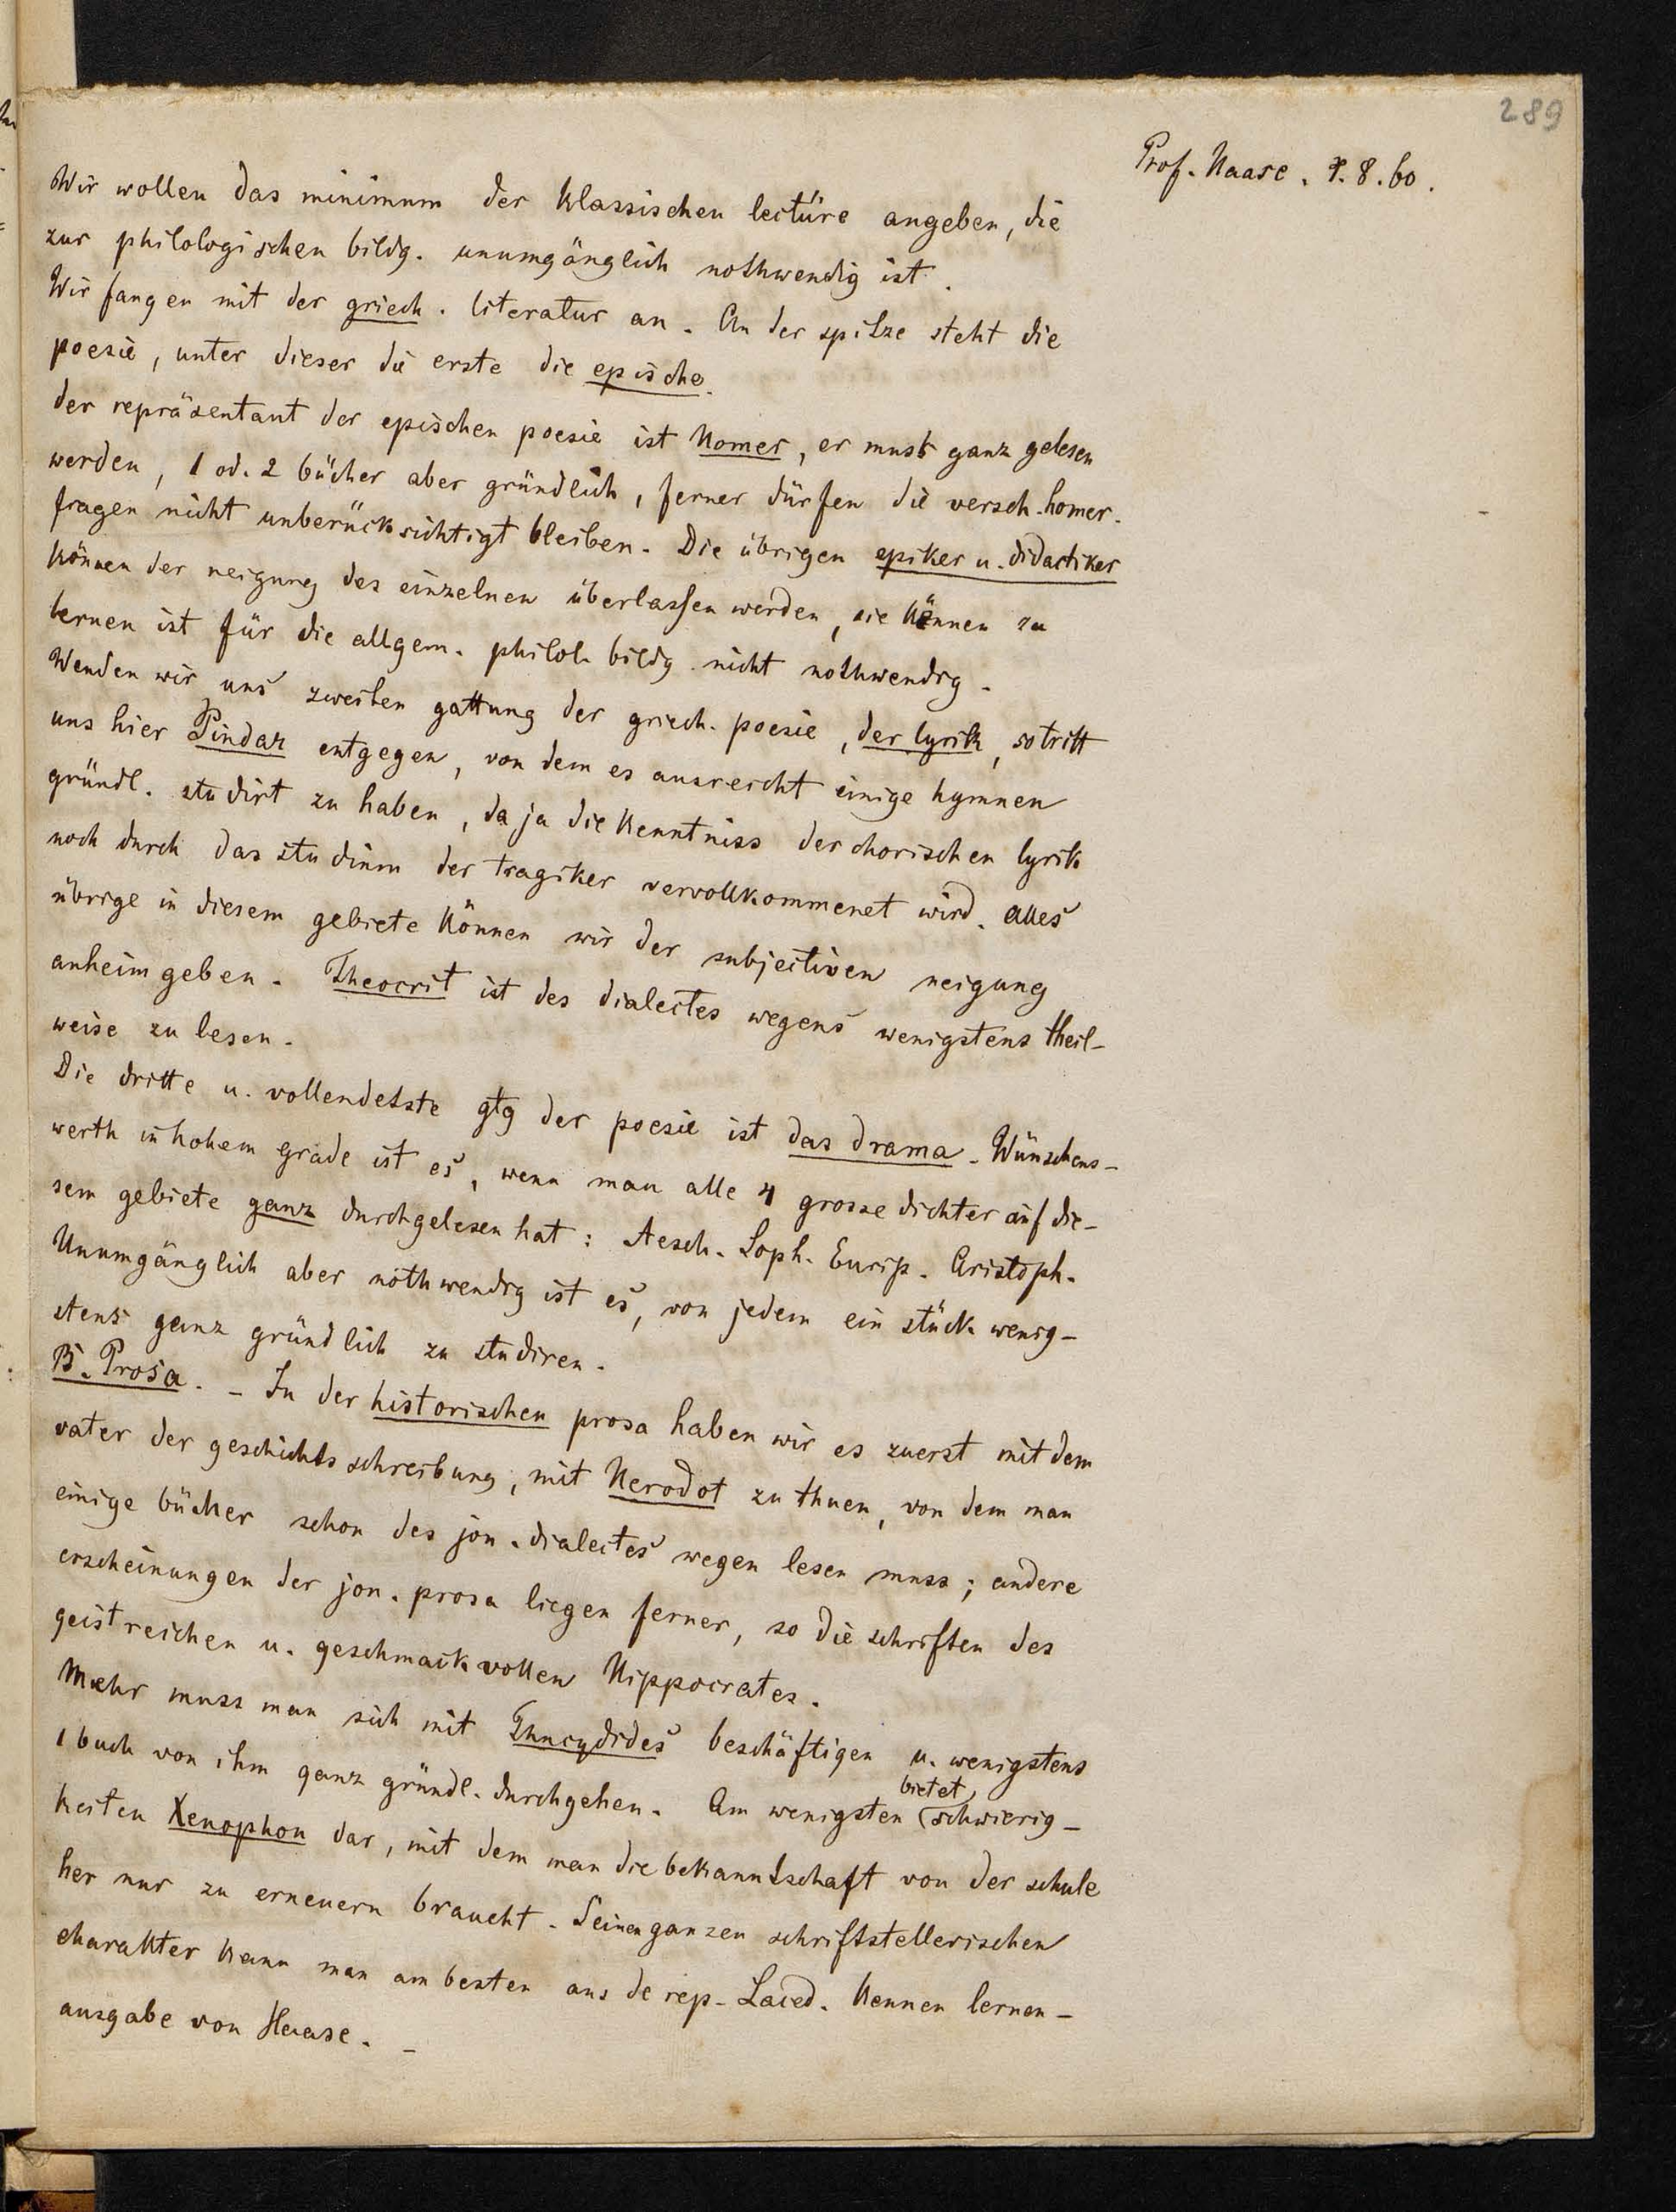 289
Prof. Haase. 7. 8. 60.
Wir wollen das minimum der klassischen lectüre angeben, die
zur philologischen bildg. unumgänglich nothwendig ist.
Wir fangen mit der griech. literatur an. An der spitze steht die
poesie, unter dieser die erste die epische.
der repräsentant der epischen poesie ist Homer, er muss ganz gelesen
werden, 1 od. 2 bücher aber gründlich, ferner dürfen die versch. homer.
fragen nicht unberücksichtigt bleiben. Die übrigen epiker u. didactiker
können der neigung des einzelnen überlassen werden, sie kennen zu
lernen ist für die allgem. philol. bildg nicht nothwendig.
Wenden wir uns zweiten gattung der griech. poesie, der lyrik, so tritt
uns hier Pindar entgegen, von dem es ausreicht einige hymnen
gründl. studirt zu haben, da ja die kenntniss der chorischen lyrik
noch durch das studium der tragiker vervollkommenet wird. alles
übrige in diesem gebiete können wir der subjectiven neigung
anheimgeben. Theocrit ist des dialectes wegens wenigstens theil-
weise zu lesen.
Die dritte u. vollendetste gtg der poesie ist das drama. Wünschens-
werth in hohem grade ist es, wenn man alle 4 grosse dichter auf die-
sem gebiete ganz durchgelesen hat: Aesch. Soph. Eurip. Aristoph.
Unumgänglich aber nothwendig ist es, von jedem ein stück wenig-
stens ganz gründlich zu studiren.
B. Prosa. - In der historischen prosa haben wir es zuerst mit dem
vater der geschichtsschreibung, mit Herodot zu thuen, von dem man
einige bücher schon des jon. dialectes wegen lesen muss; andere
erscheinungen der jon. prosa liegen ferner, so die schriften des
geistreichen u. geschmackvollen Hippocrates.
Mehr muss man sich mit Thucydides beschäftigen u. wenigstens
1 buch von ihm ganz gründl. durchgehen. Am wenigsten bietet schwierig-
keiten Xenophon dar, mit dem man die bekanntschaft von der schule
her nur zu erneuern braucht. Seinen ganzen schriftstellerischen
charakter kann man am besten aus de rep. Laced. kennen lernen -
ausgabe von Haase. -